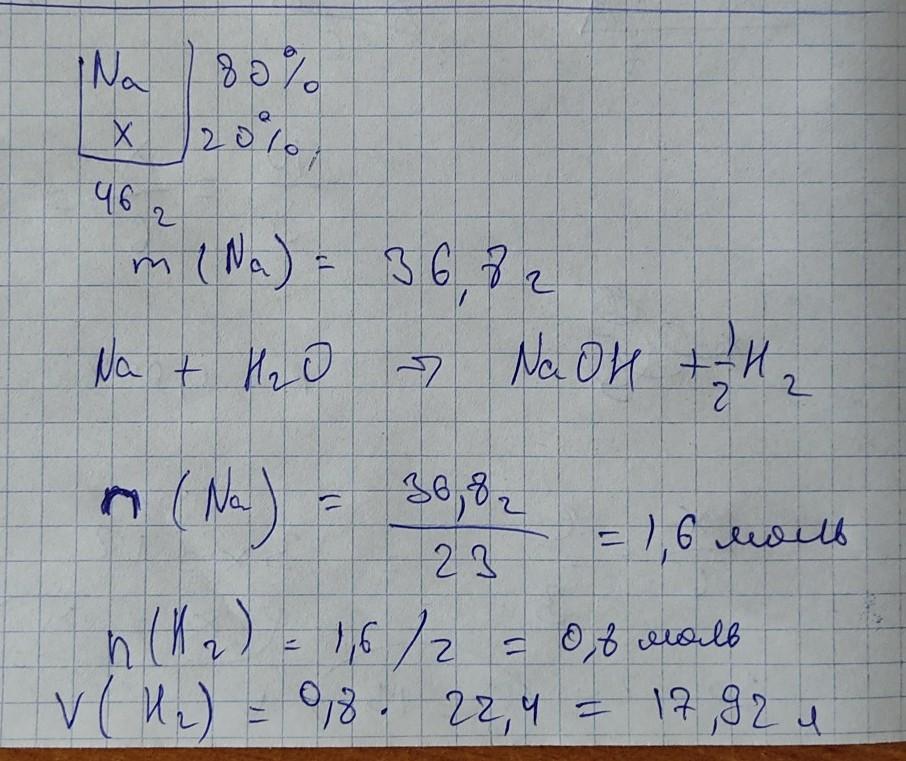 Na | 80%
X | 20%,
46 г
m (Na) = 36,8 г
Na + H₂O → NaOH + 1/2 H₂
n (Na) = 36,8 г / 23 = 1,6 моль
n(H₂) = 1,6 / 2 = 0,8 моль
V(H₂) = 0,8 · 22,4 = 17,92 л